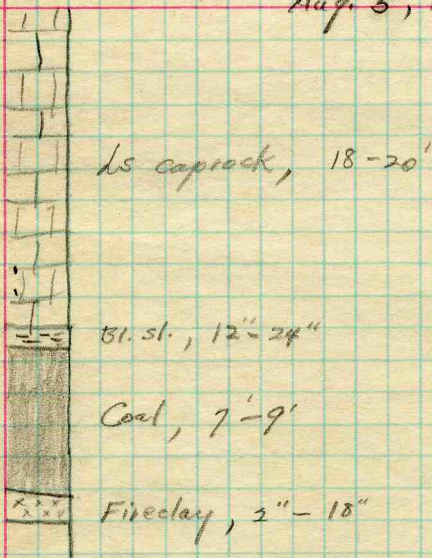 Aug. 5,
Ls caprock, 18-20'
Bl. sl., 12"-24"
Coal, 7'-9'
Fireclay, 2"-18"